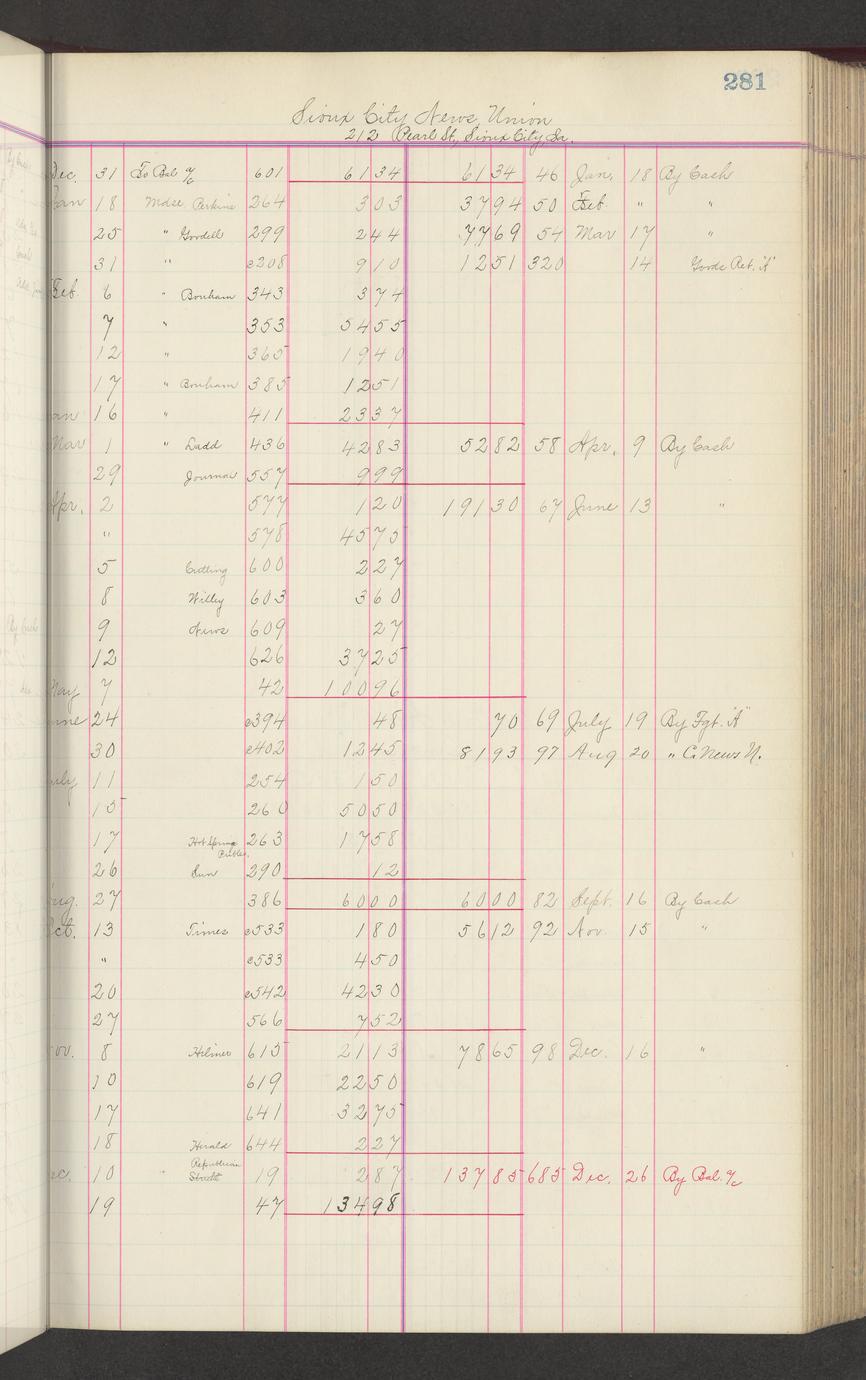 281
Sioux City News Union
212 Pearl St, Sioux City, Ia.
Dec. 31 To Bal a/c 601 61 34 61 34 46 Jan. 18 By Cash
Jan 18 Mdse. Perkins 264 3 03 37 94 50 Feb. " "
25 " Goodell 299 2 44 77 69 54 Mar 17 "
31 " c208 9 10 12 51 320 14 Goods Ret. "A"
Feb. 6 " Bonham 343 3 74
7 " 353 54 55
12 " 365 19 40
17 " Bonham 385 12 51
an 16 " 411 23 37
Mar 1 " Ladd 436 42 83 52 82 58 Apr. 9 By Cash
29 Journal 557 9 99
Apr. 2 577 1 20 191 30 67 June 13 "
" 578 45 75
5 Cutting 600 2 27
8 Willey 603 3 60
9 News 609 27
12 626 37 25
May 7 42 100 96
une 24 c394 48 70 69 July 19 By Fgt. "A"
30 c402 12 45 81 93 97 Aug 20 " C. News U.
uly 11 254 1 50
15 260 50 50
17 Hot Spring 263 17 58
26 Sun 290 12
ug. 27 386 60 00 60 00 82 Sept. 16 By Cash
ct. 13 Times c533 1 80 56 12 92 Nov. 15 "
" c533 4 50
20 c542 42 30
27 566 7 52
ov. 8 Hilmer 615 21 13 78 65 98 Dec. 16 "
10 619 22 50
17 641 32 75
18 Herald 644 2 27
ec. 10 " Republican 19 2 87 137 85 685 Dec. 26 By Bal. a/c
19 47 134 98